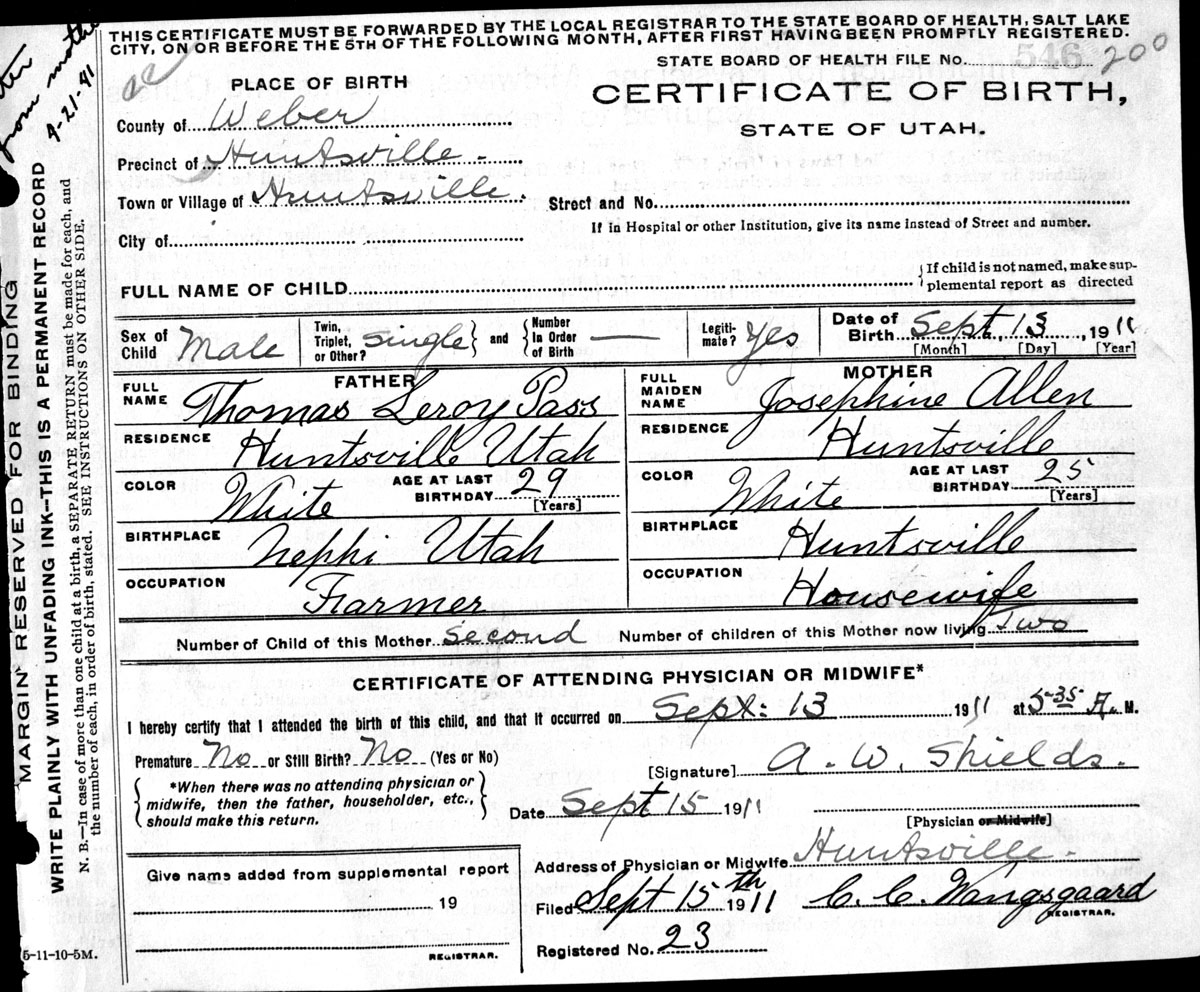 THIS CERTIFICATE MUST BE FORWARDED BY THE LOCAL REGISTRAR TO THE STATE BOARD OF HEALTH, SALT LAKE
CITY, ON OR BEFORE THE 5TH OF THE FOLLOWING MONTH, AFTER FIRST HAVING BEEN PROMPTLY REGISTERED.
STATE BOARD OF HEALTH FILE No. 546 200
PLACE OF BIRTH
CERTIFICATE OF BIRTH,
STATE OF UTAH.
County of Weber
Precinct of Huntsville
Town or Village of Huntsville.
Street and No.
City of
If in Hospital or other Institution, give its name instead of Street and number.
FULL NAME OF CHILD
{If child is not named, make sup-
plemental report as directed
Sex of Child Male
Twin, Triplet, or Other? Single } and { Number In Order of Birth —
Legiti-mate? Yes
Date of Birth Sept. 13, 1911
[Month] [Day] [Year]
FATHER
FULL NAME Thomas Leroy Pass
RESIDENCE Huntsville Utah
COLOR White AGE AT LAST BIRTHDAY 29 [Years]
BIRTHPLACE Nephi Utah
OCCUPATION Farmer
MOTHER
FULL MAIDEN NAME Josephine Allen
RESIDENCE Huntsville
COLOR White AGE AT LAST BIRTHDAY 25 [Years]
BIRTHPLACE Huntsville
OCCUPATION Housewife
Number of Child of this Mother Second Number of children of this Mother now living Two
CERTIFICATE OF ATTENDING PHYSICIAN OR MIDWIFE*
I hereby certify that I attended the birth of this child, and that it occurred on Sept: 13 1911 at 5-35 A. M.
Premature No or Still Birth? No (Yes or No)
[Signature] A. W. Shields.
{ *When there was no attending physician or
midwife, then the father, householder, etc.,
should make this return. }
Date Sept 15 1911
[Physician or Midwife]
Address of Physician or Midwife Huntsville.
Give name added from supplemental report
19
REGISTRAR.
Filed Sept 15th 1911 C. C. Wangsgaard
REGISTRAR.
Registered No. 23
5-11-10-5M.
MARGIN RESERVED FOR BINDING
WRITE PLAINLY WITH UNFADING INK—THIS IS A PERMANENT RECORD
N. B.—In case of more than one child at a birth, a SEPARATE RETURN must be made for each, and
the number of each, in order of birth, stated. SEE INSTRUCTIONS ON OTHER SIDE.
from mother
9-21-41